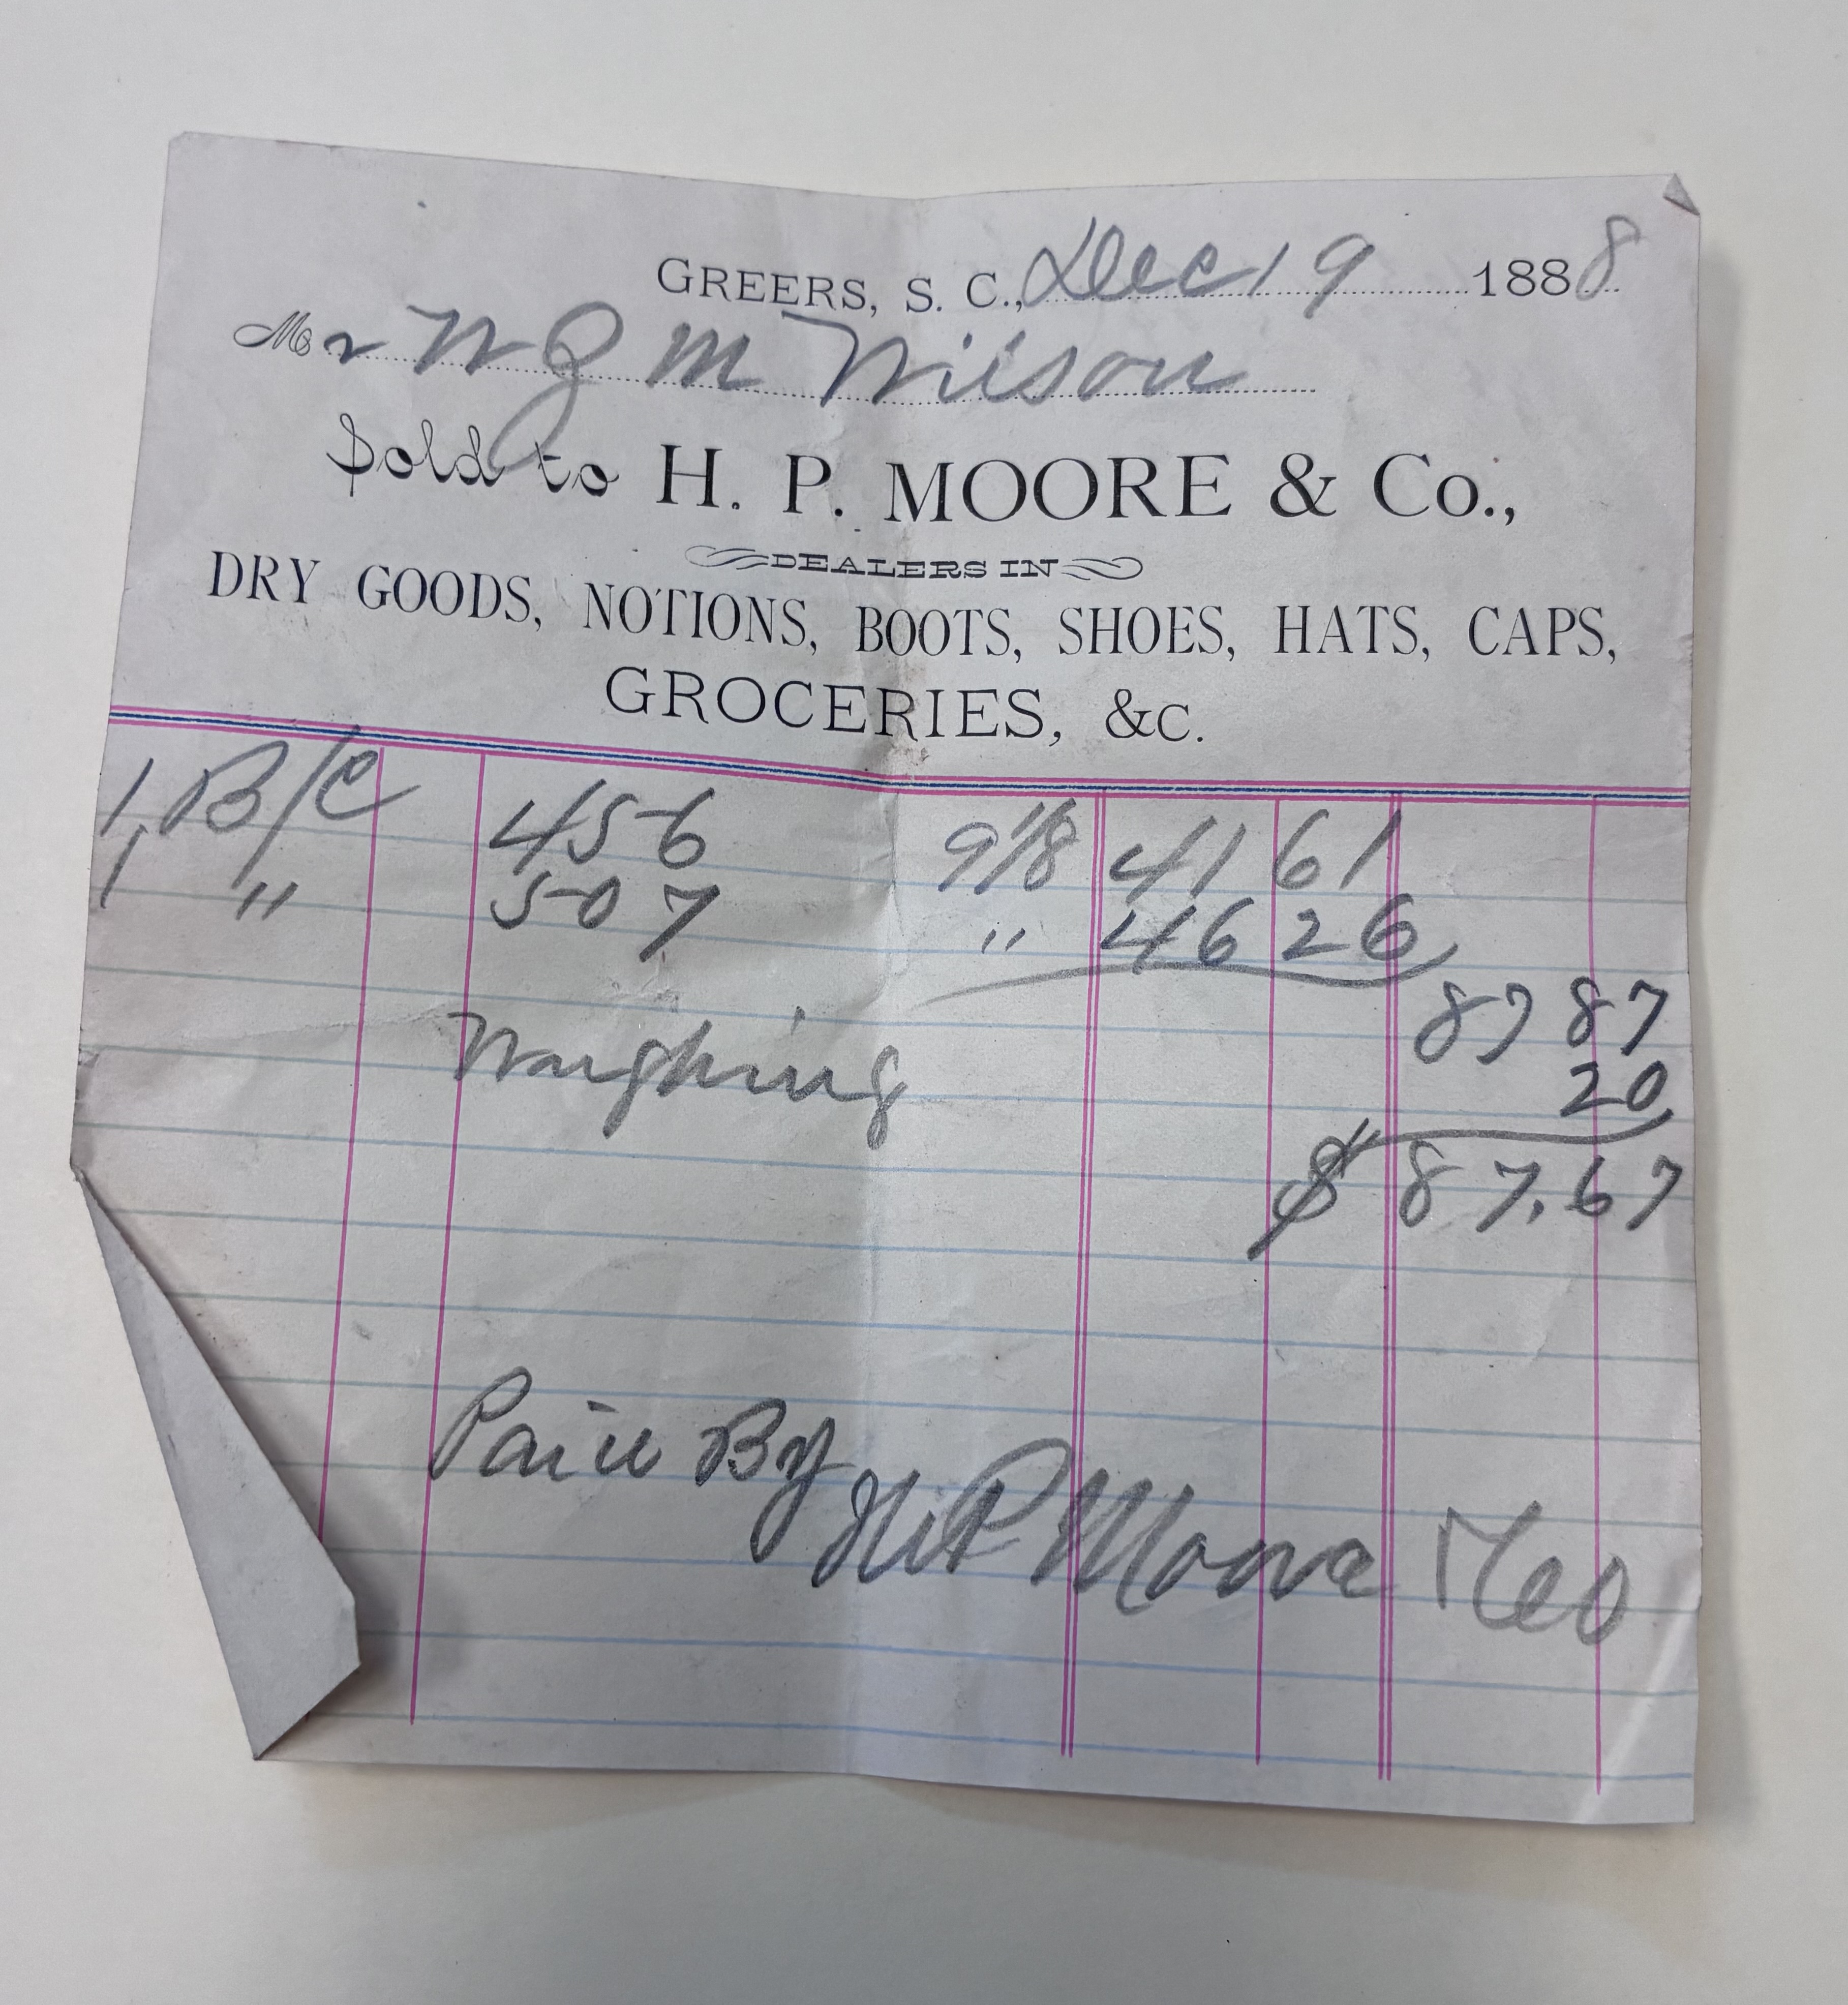 GREERS, S. C., Dec 19 1888
Mr W J M Wilson
Sold to H. P. MOORE & Co.,
DEALERS IN
DRY GOODS, NOTIONS, BOOTS, SHOES, HATS, CAPS,
GROCERIES, &C.
1 B/C 456 9 1/8 41 61
1 " 507 " 46 26
87 87
Weighing 20
$ 87.67
Paid By
H P Moore & Co